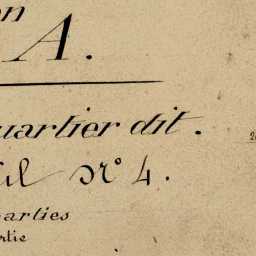 on
A.
uartier dit.
el N° 4.
arties
rtie